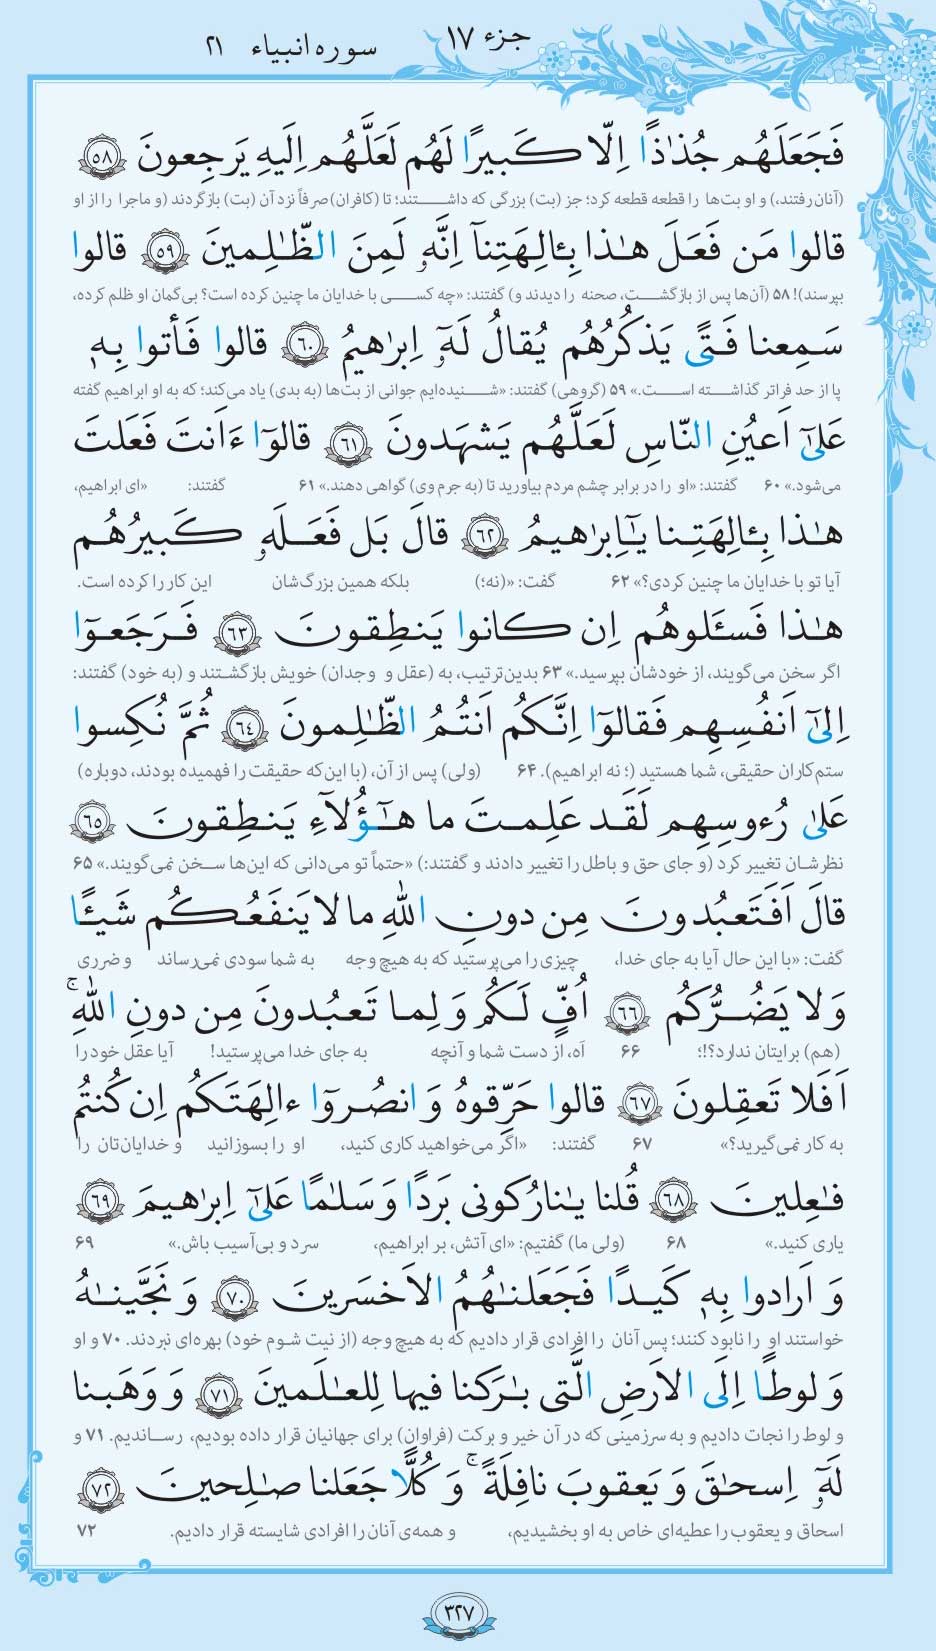 جزء ۱۷
سوره انبیاء ۲۱
فَجَعَلَهُم جُذٰذًا اِلّا كَبيرًا لَهُم لَعَلَّهُم اِلَيهِ يَرجِعونَ ﴿٥٨﴾
(آنان رفتند،) و او بت‌ها را قطعه قطعه کرد؛ جز (بت) بزرگی که داشتند؛ تا (کافران) صرفاً نزد آن (بت) بازگردند (و ماجرا را از او
قالوا مَن فَعَلَ هٰذا بِـٔالِهَتِنآ اِنَّهٗ لَمِنَ الظّٰلِمينَ ﴿٥٩﴾ قالوا
بپرسند)! ۵۸ (آن‌ها پس از بازگشت، صحنه را دیدند و) گفتند: «چه کسی با خدایان ما چنین کرده است؟ بی‌گمان او ظلم کرده،
سَمِعنا فَتًى يَذكُرُهُم يُقالُ لَهٗٓ اِبرٰهيمُ ﴿٦٠﴾ قالوا فَأتوا بِهٖ
پا از حد فراتر گذاشته است.» ۵۹ (گروهی) گفتند: «شنیده‌ایم جوانی از بت‌ها (به بدی) یاد می‌کند؛ که به او ابراهیم گفته
عَلىٰٓ اَعيُنِ النّاسِ لَعَلَّهُم يَشهَدونَ ﴿٦١﴾ قالوٓا ءَاَنتَ فَعَلتَ
می‌شود.» ۶۰ گفتند: «او را در برابر چشم مردم بیاورید تا (به جرم وی) گواهی دهند.» ۶۱ گفتند: «ای ابراهیم،
هٰذا بِـٔالِهَتِنا يٰٓاِبرٰهيمُ ﴿٦٢﴾ قالَ بَل فَعَلَهٗ كَبيرُهُم
آیا تو با خدایان ما چنین کردی؟» ۶۲ گفت: «(نه؛) بلکه همین بزرگ‌شان این کار را کرده است.
هٰذا فَسـَٔلوهُم اِن كانوا يَنطِقونَ ﴿٦٣﴾ فَرَجَعوٓا
اگر سخن می‌گویند، از خودشان بپرسید.» ۶۳ بدین‌ترتیب، به (عقل و وجدان) خویش بازگشتند و (به خود) گفتند:
اِلىٰٓ اَنفُسِهِم فَقالوٓا اِنَّكُم اَنتُمُ الظّٰلِمونَ ﴿٦٤﴾ ثُمَّ نُكِسوا
ستم‌کاران حقیقی، شما هستید (؛ نه ابراهیم). ۶۴ (ولی) پس از آن، (با این‌که حقیقت را فهمیده بودند، دوباره)
عَلىٰ رُءوسِهِم لَقَد عَلِمتَ ما هٰٓؤُلآءِ يَنطِقونَ ﴿٦٥﴾
نظرشان تغییر کرد (و جای حق و باطل را تغییر دادند و گفتند:) «حتماً تو می‌دانی که این‌ها سخن نمی‌گویند.» ۶۵
قالَ اَفَتَعبُدونَ مِن دونِ اللّٰهِ ما لا يَنفَعُكُم شَيـًٔا
گفت: «با این حال آیا به جای خدا، چیزی را می‌پرستید که به هیچ وجه به شما سودی نمی‌رساند و ضرری
وَ لا يَضُرُّكُم ﴿٦٦﴾ اُفٍّ لَكُم وَ لِما تَعبُدونَ مِن دونِ اللّٰهِ ۚ
(هم) برایتان ندارد؟!؛ ۶۶ اَه، از دست شما و آنچه به جای خدا می‌پرستید! آیا عقل خود را
اَفَلا تَعقِلونَ ﴿٦٧﴾ قالوا حَرِّقوهُ وَ انصُروٓا ءالِهَتَكُم اِن كُنتُم
به کار نمی‌گیرید؟» ۶۷ گفتند: «اگر می‌خواهید کاری کنید، او را بسوزانید و خدایان‌تان را
فٰعِلينَ ﴿٦٨﴾ قُلنا يٰنارُ كوني بَردًا وَ سَلٰمًا عَلىٰٓ اِبرٰهيمَ ﴿٦٩﴾
یاری کنید.» ۶۸ (ولی ما) گفتیم: «ای آتش، بر ابراهیم، سرد و بی‌آسیب باش.» ۶۹
وَ اَرادوا بِهٖ كَيدًا فَجَعَلنٰهُمُ الاَخسَرينَ ﴿٧٠﴾ وَ نَجَّينٰهُ
خواستند او را نابود کنند؛ پس آنان را افرادی قرار دادیم که به هیچ وجه (از نیت شوم خود) بهره‌ای نبردند. ۷۰ و او
وَ لوطًا اِلَى الاَرضِ الَّتي بٰرَكنا فيها لِلعٰلَمينَ ﴿٧١﴾ وَ وَهَبنا
و لوط را نجات دادیم و به سرزمینی که در آن خیر و برکت (فراوان) برای جهانیان قرار داده بودیم، رساندیم. ۷۱ و
لَهٗٓ اِسحٰقَ وَ يَعقوبَ نافِلَةً ۚ وَ كُلًّا جَعَلنا صٰلِحينَ ﴿٧٢﴾
اسحاق و یعقوب را عطیه‌ای خاص به او بخشیدیم، و همه‌ی آنان را افرادی شایسته قرار دادیم. ۷۲
۳۲۷